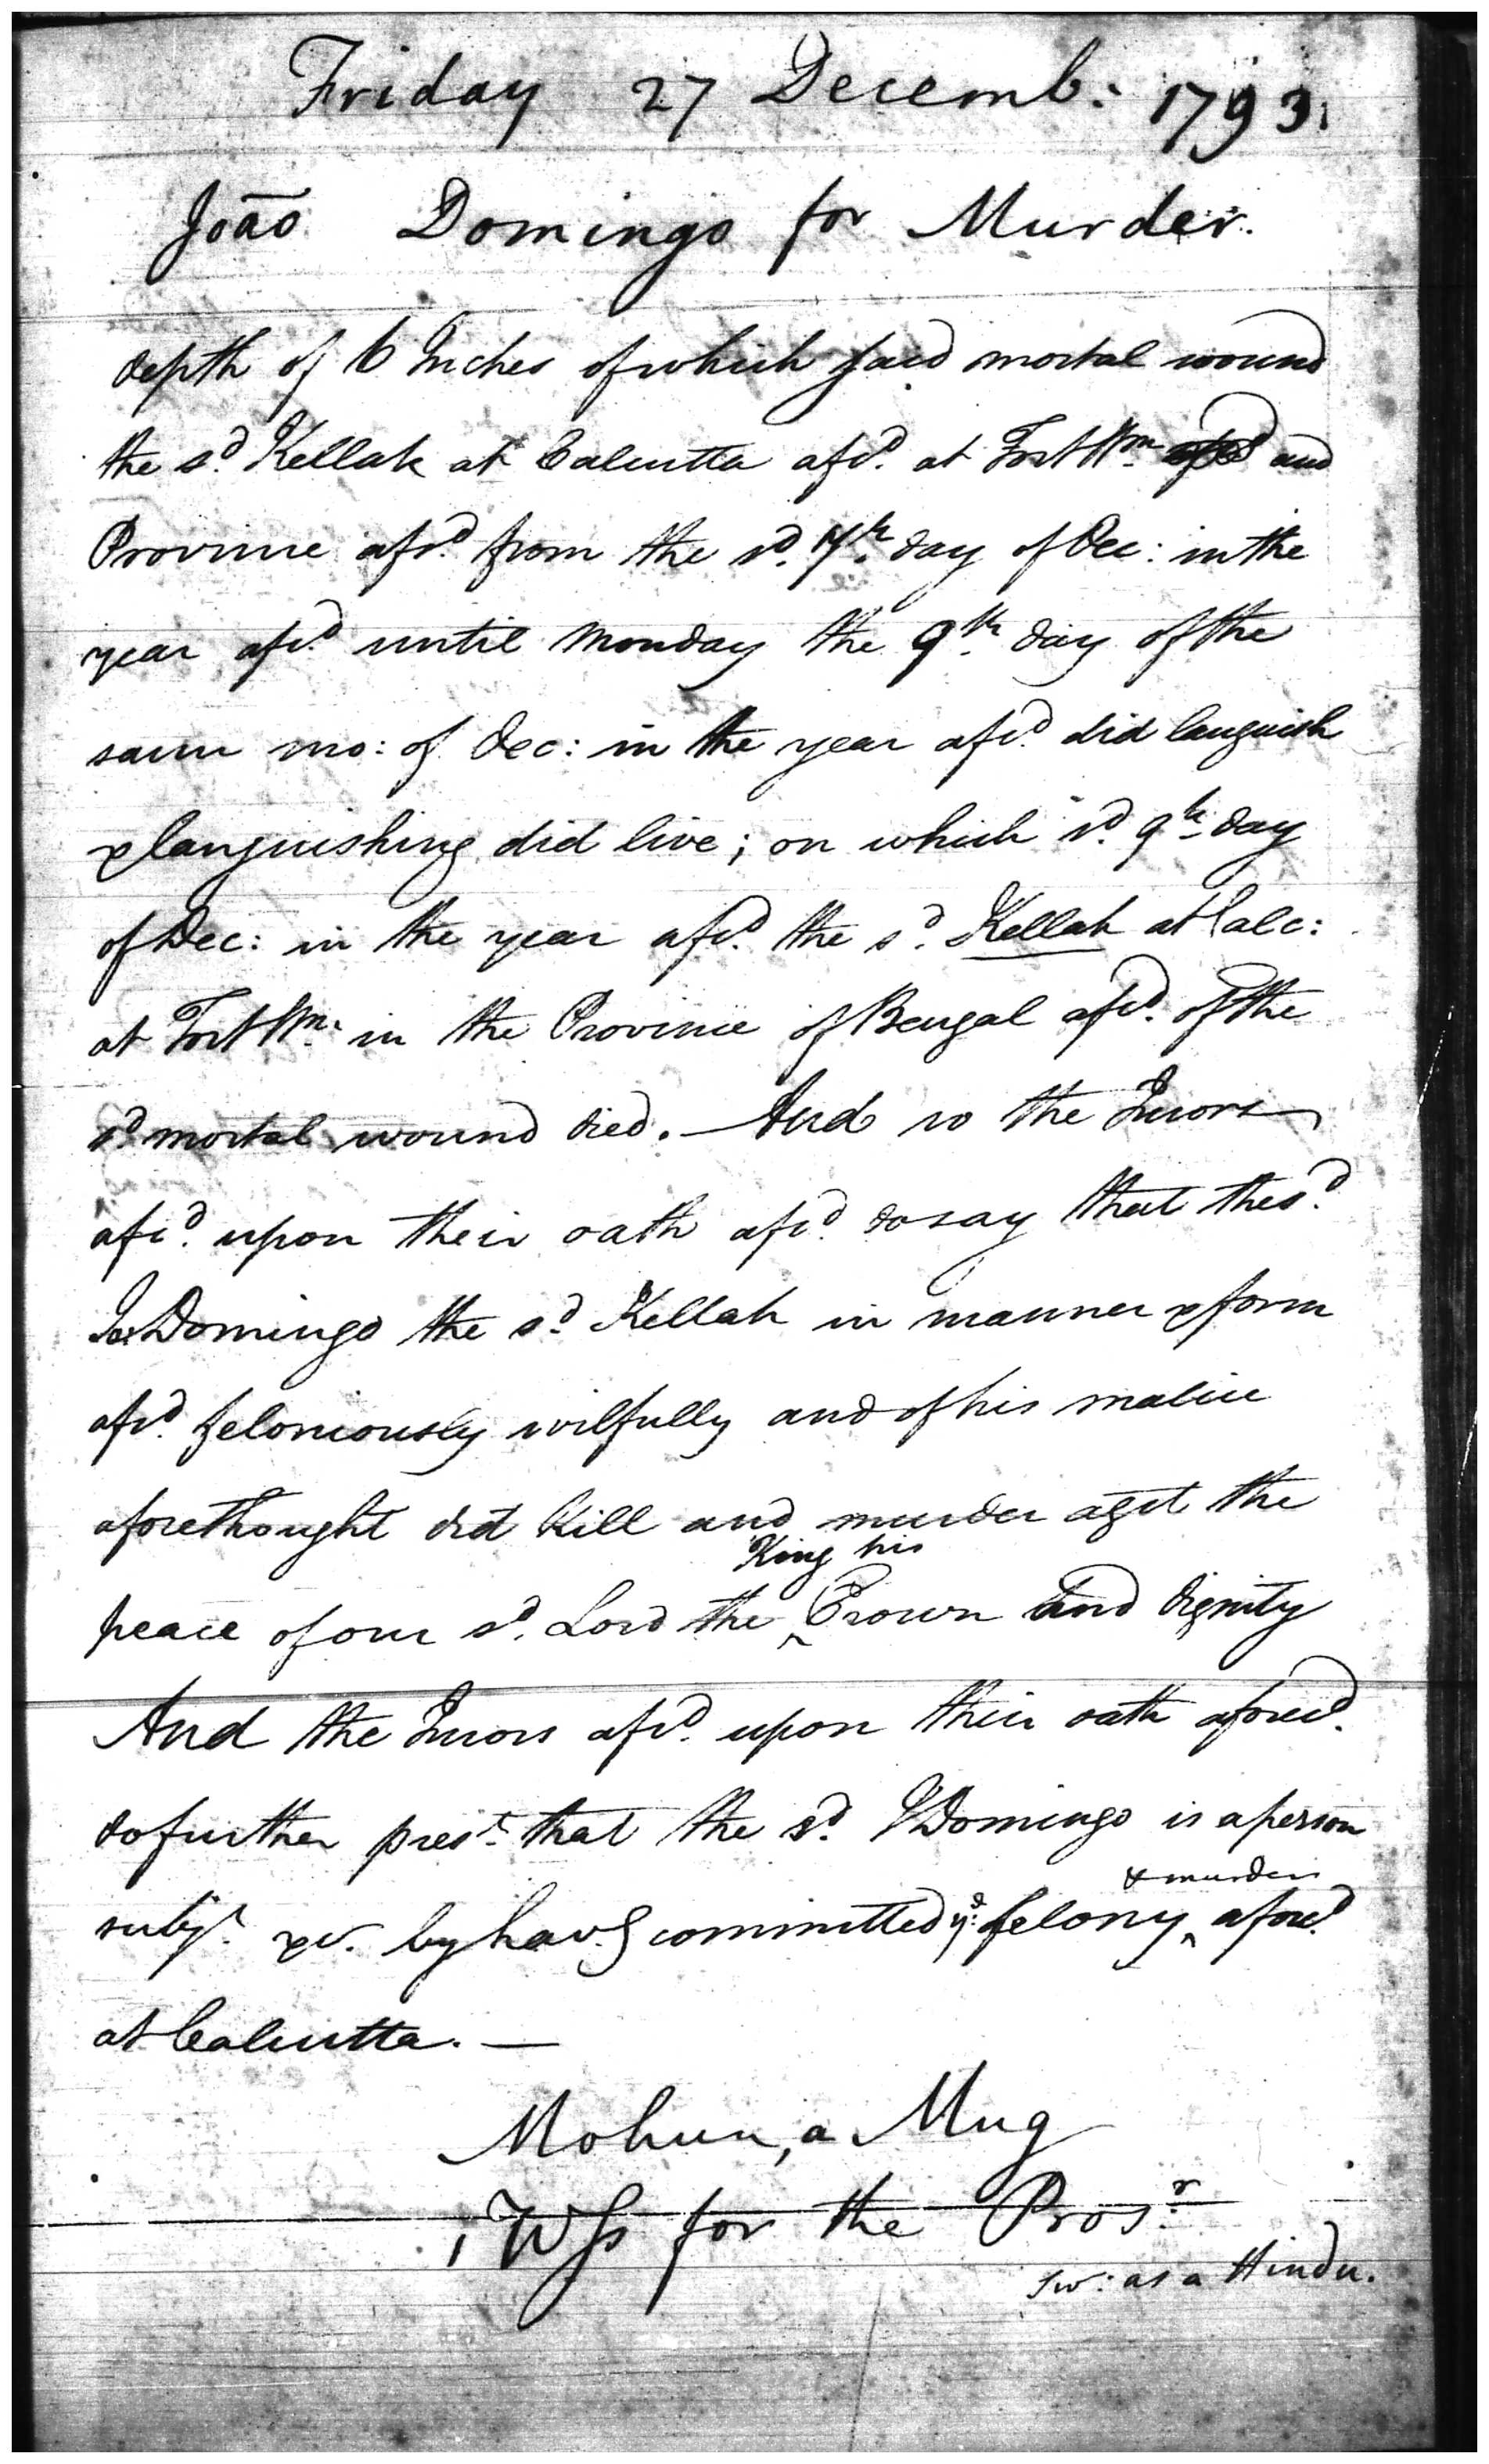 Friday 27 Decemb: 1793.
João Domingo for Murder.
depth of 6 Inches of which said mortal wound
the sd. Kellah at Calcutta afsd. at Fort Wm. and
Province afsd. from the sd. 7th day of Dec: in the
year afsd. until Monday the 9th day of the
same mo: of Dec: in the year afsd. did languish
& languishing did live; on which sd. 9th day
of Dec: in the year afsd. the sd. Kellah at Calc:
at Fort Wm. in the Province of Bengal afsd. of the
sd. mortal wound died. — And so the Jurors
afsd. upon their oath afsd. do say that the sd.
Domingo the sd. Kellah in manner & form
afsd. feloniously wilfully and of his malice
aforethought did kill and murder agst the
King his
peace of our sd. Lord the ‸ Crown and dignity
And the Jurors afsd. upon their oath aforesd.
do further prest. that the sd. J Domingo is a person
& murder
subjt. &c. by havg committed ye. felony ‸ aforesd
at Calcutta. —
Mohun, a Mug
1 Wss for the Prosr.
sw: as a Hindu.